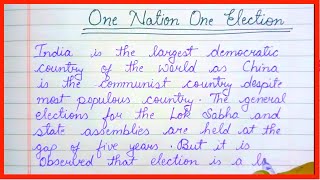 One Nation One Election
India is the largest democratic
country of the world as China
is the communist country despite
most populous country. The general
elections for the Lok Sabha and
state assemblies are held at the
gap of five years. But it is
observed that election is a